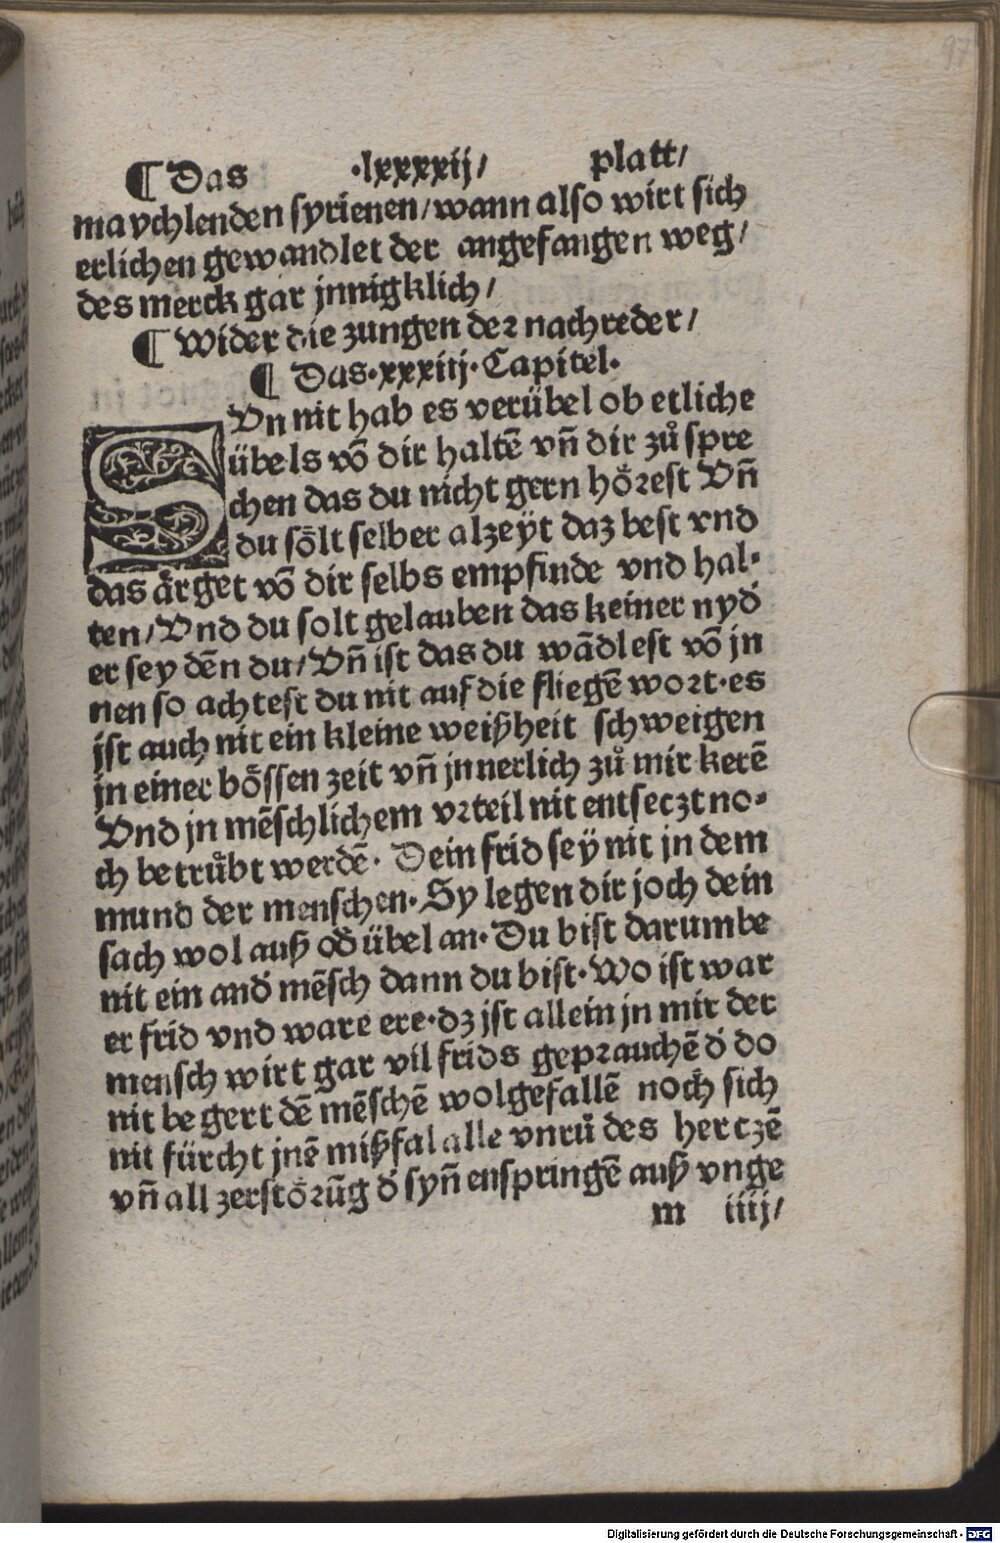 97
¶ Das .lxxxxij/ platt/
maychlenden syrienen/wann also wirt sich
erlichen gewandlet der angefangen weg/
des merck gar jnnigklich/
¶ Wider die zungen der nachreder/
¶ Das.xxxiij.Capitel.
SVn nit hab es verübel ob etliche
übels vō dir haltē vn̄ dir zů spre
chen das du nicht gern hörest Vn̄
du sölt selber alzeyt daz best vnd
das ärget vō dir selbs empfinde vnd hal-
ten/Vnd du solt gelauben das keiner nyd
er sey dēn du/Vn̄ ist das du wādlest vō jn
nen so achtest du nit auf die fliegē wort.es
jst auch nit ein kleine weißheit schweigen
jn einer bössen zeit vn̄ jnnerlich zů mir kerē
Vnd jn mēschlichem vrteil nit entseczt no-
ch betrůbt werdē. Dein frid seÿ nit jn dem
mund der menschen.Sy legen dir joch dein
sach wol auß od̄ übel an.Du bist darumbe
nit ein and̄ mēsch dann du bist.Wo ist war
er frid vnd ware ere.dz jst allein jn mir der
mensch wirt gar vil frids geprauchē d̄ do
nit begert dē mēschē wolgefallē noch sich
nit fürcht jnē mißfal alle vnrů des hertzē
vn̄ all zerstörūg d̄ syn̄ enspringē auß vnge
m iiij/
Digitalisierung gefördert durch die Deutsche Forschungsgemeinschaft - DFG